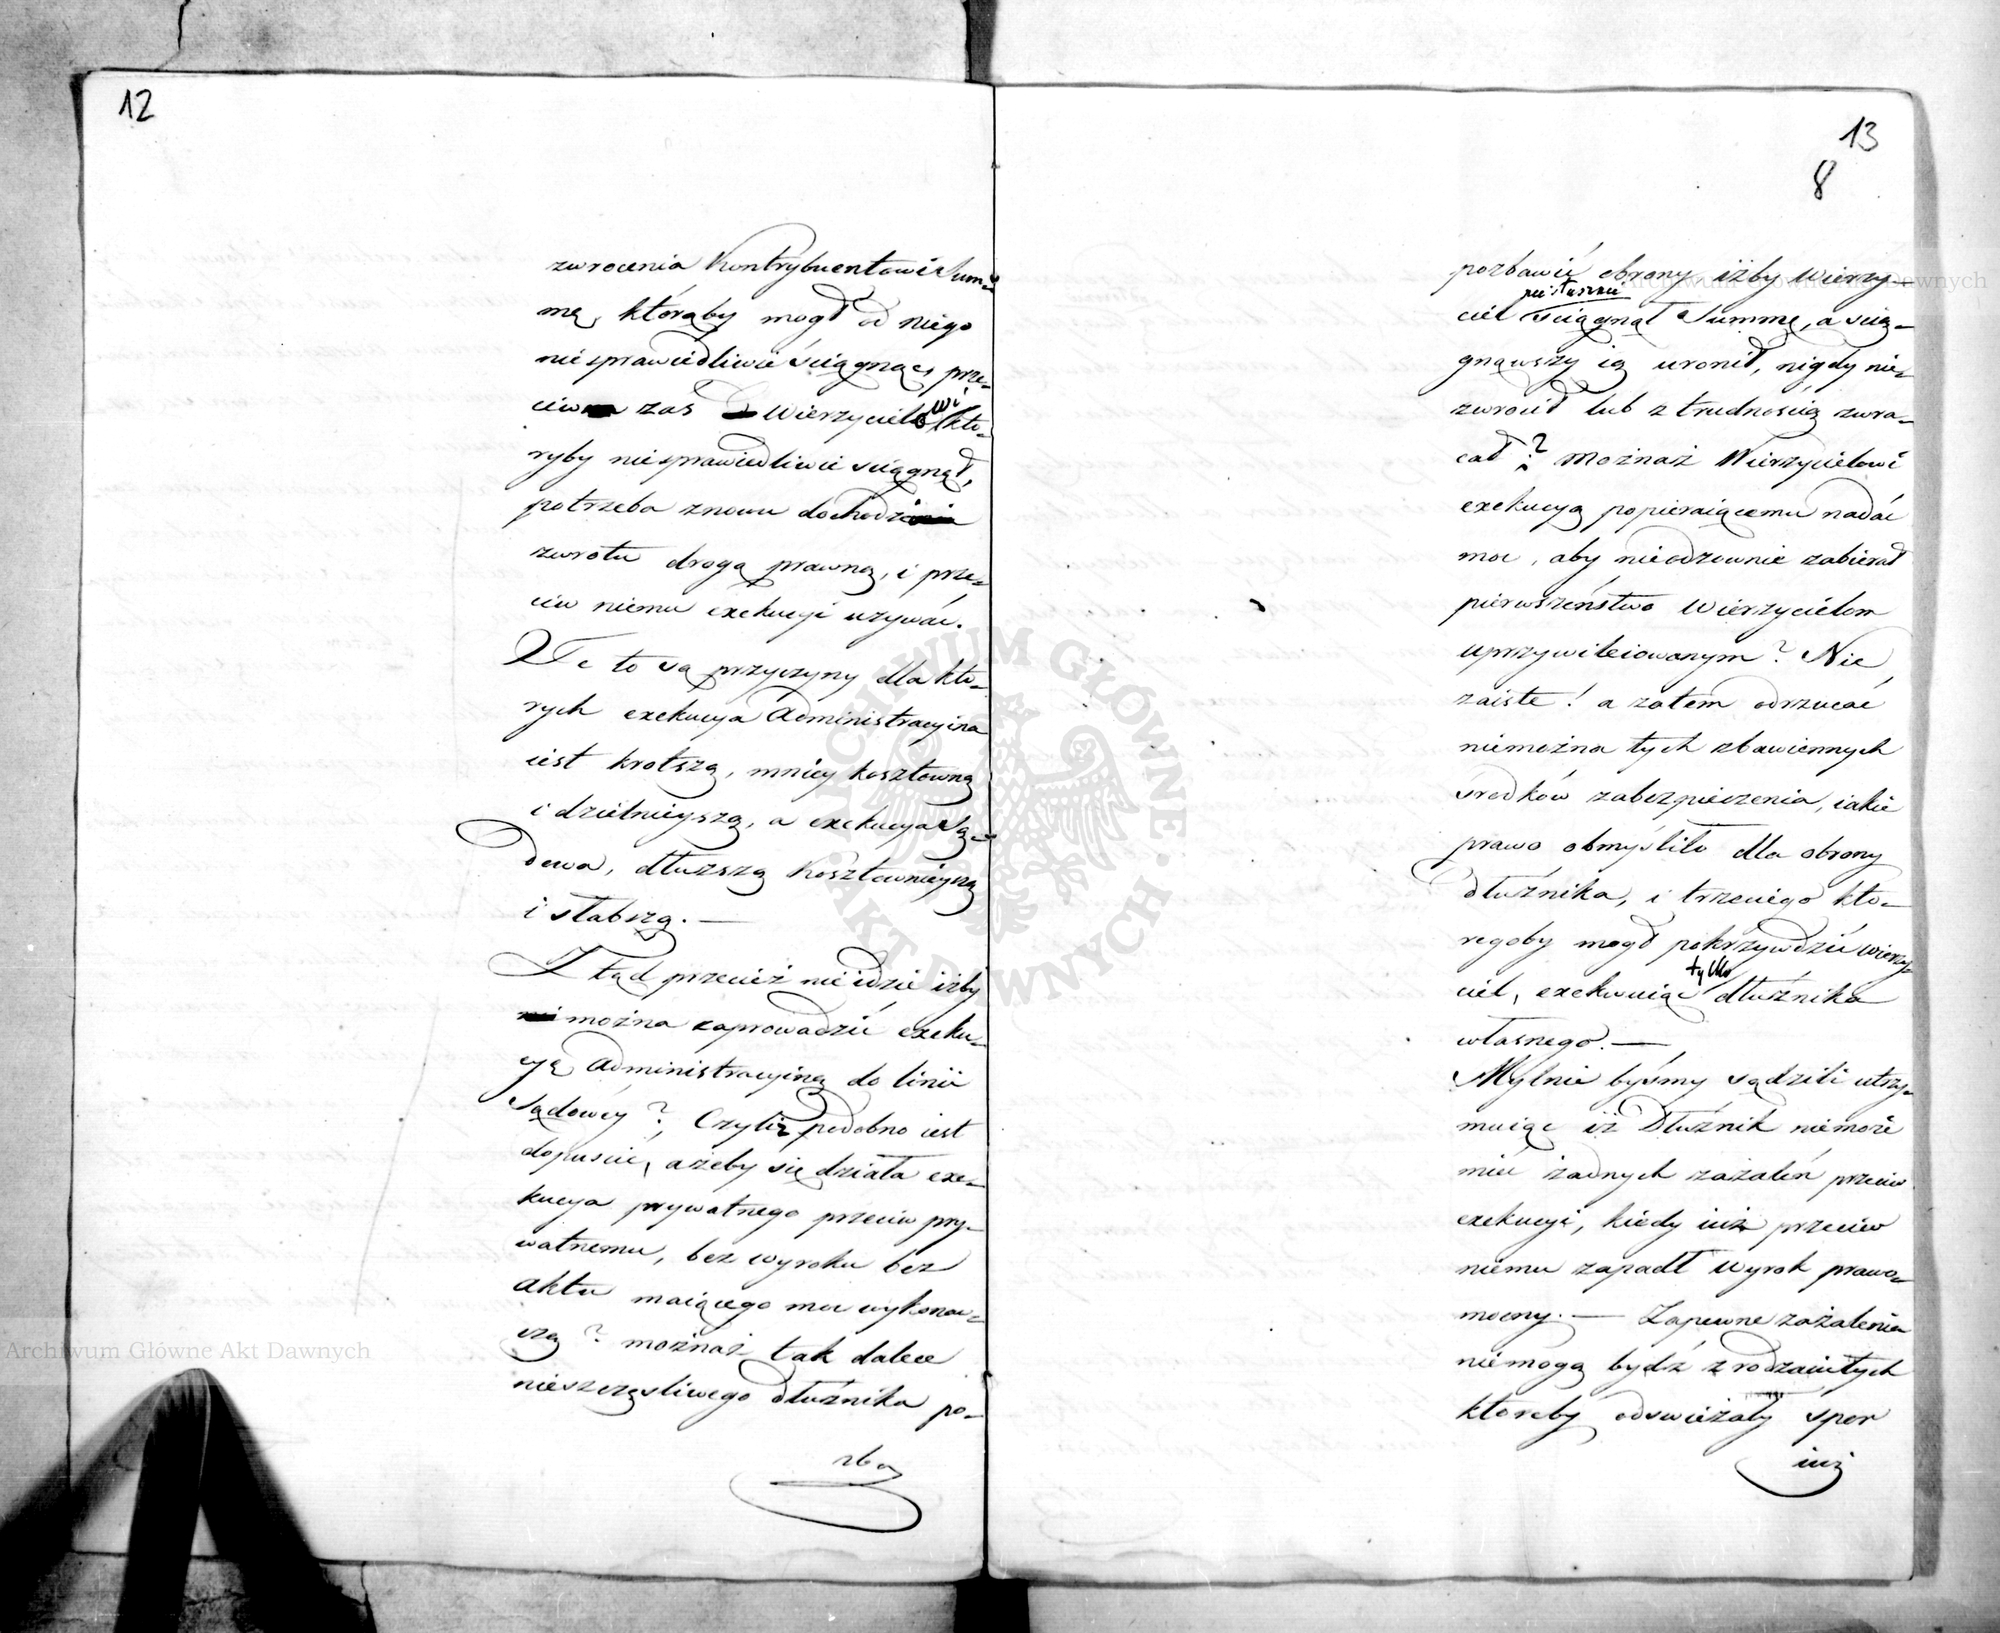 12
zwrocenia Kontrybuentowi Sum-
mę, którąby mogł od niego
niesprawiedliwie ściągnąć, prze-
ciw zaś Wierzycielowi kto-
ryby niesprawiedliwie ściągnął,
potrzeba znowu dochodzi
zwrotu drogą prawną, i prze-
ciw niemu exekucyi używać.
Te to są przyczyny dla kto-
rych exekucya Administracyina
iest krotszą, mniey kosztowną
i dzielnieyszą, a exekucya Są-
dowa, dłuższą kosztownieyszą
i słabszą. —
Z tąd przecież nie idzie iżby
można zaprowadzić exeku-
cyę Administracyiną do linii
Sądowey? Czyliż podobno iest
dopuscić, ażeby się działa exe-
kucya prywatnego przeciw pry-
watnemu, bez wyroku bez
aktu maiącego moc wykonaw-
czą? możnaż tak dalece
nieszczęsliwego dłużnika po-
zba
13
8
pozbawić obrony iżby Wierzy-
niesłusznie
ciel sciągnął Summę, a scią-
gnąwszy ią uronił, nigdy nie-
zwrocił lub z trudnością zwra-
cał? Możnaż Wierzycielowi
exekucyą popieraiącemu nadać
moc, aby nieodzownie zabierał
pierwszeństwo Wierzycielom
uprzywileiowanym? Nie
zaiste! a zatem odrzucać
niemożna tych zbawiennych
środków zabezpieczenia, iakie
prawo obmyśliło dla obrony
dłużnika, i trzeciego kto-
regoby mogł pokrzywdzić wierzy-
tylko
ciel, exekwuiąc dłużnika
własnego. —
Mylnie byśmy sądzili utrzy-
muiąc iż Dłużnik niemoże
mieć żadnych zażaleń przeciw
exekucyi, kiedy iuż przeciw
niemu zapadł Wyrok prawo-
mocny. — Zapewne zażalenia
niemogą bydź z rodzaiu tych
ktoreby odswieżały spor
iuż
Archiwum Główne Akt Dawnych
Archiwum Główne Akt Dawnych
ARCHIWUM GŁÓWNE · AKT DAWNYCH ·